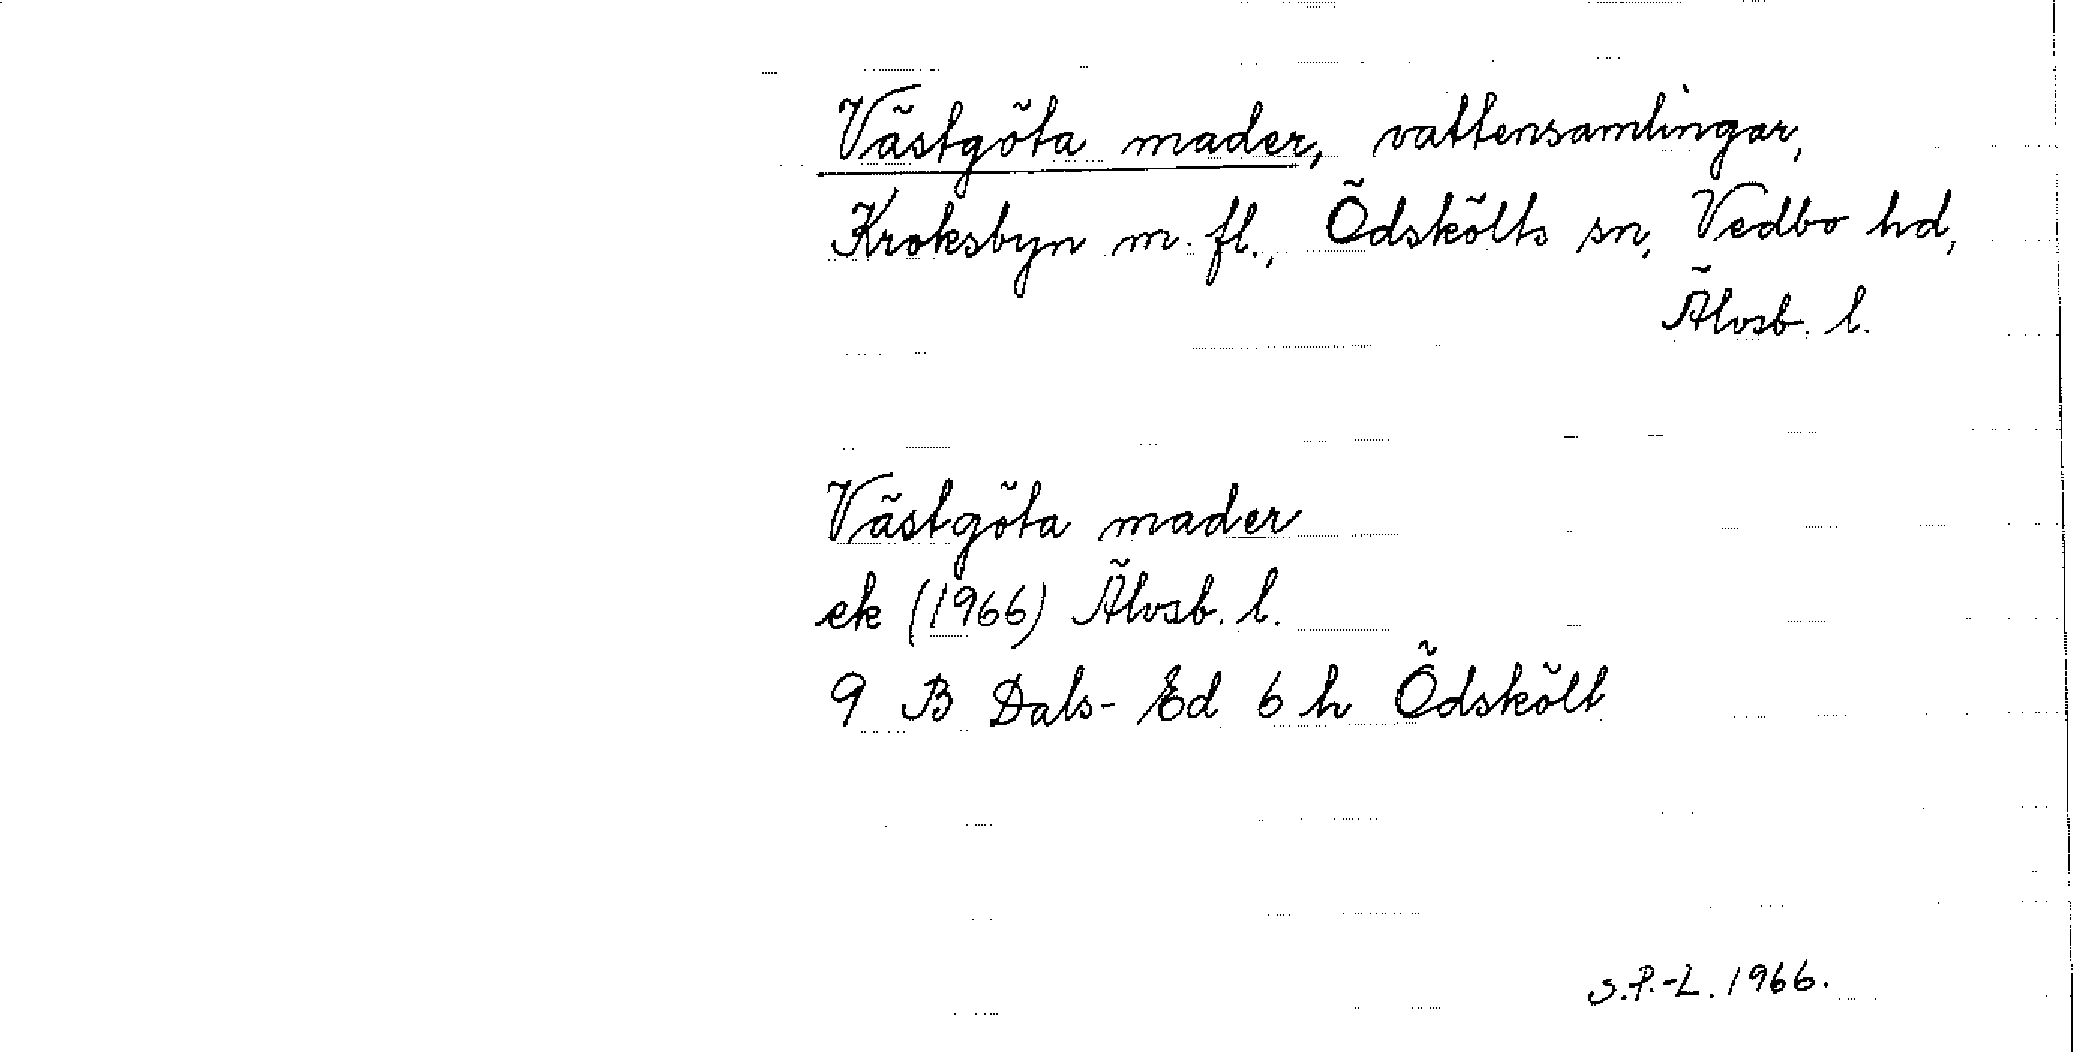 Västgöta mader, vattensamlingar,
Kroksbyn m. fl., Ödskölts sn, Vedbo hd,
Älvsb. l.
Västgöta mader
ek (1966) Älvsb. l.
9 B Dals-Ed 6 h Ödskölt
S.P.-L. 1966.